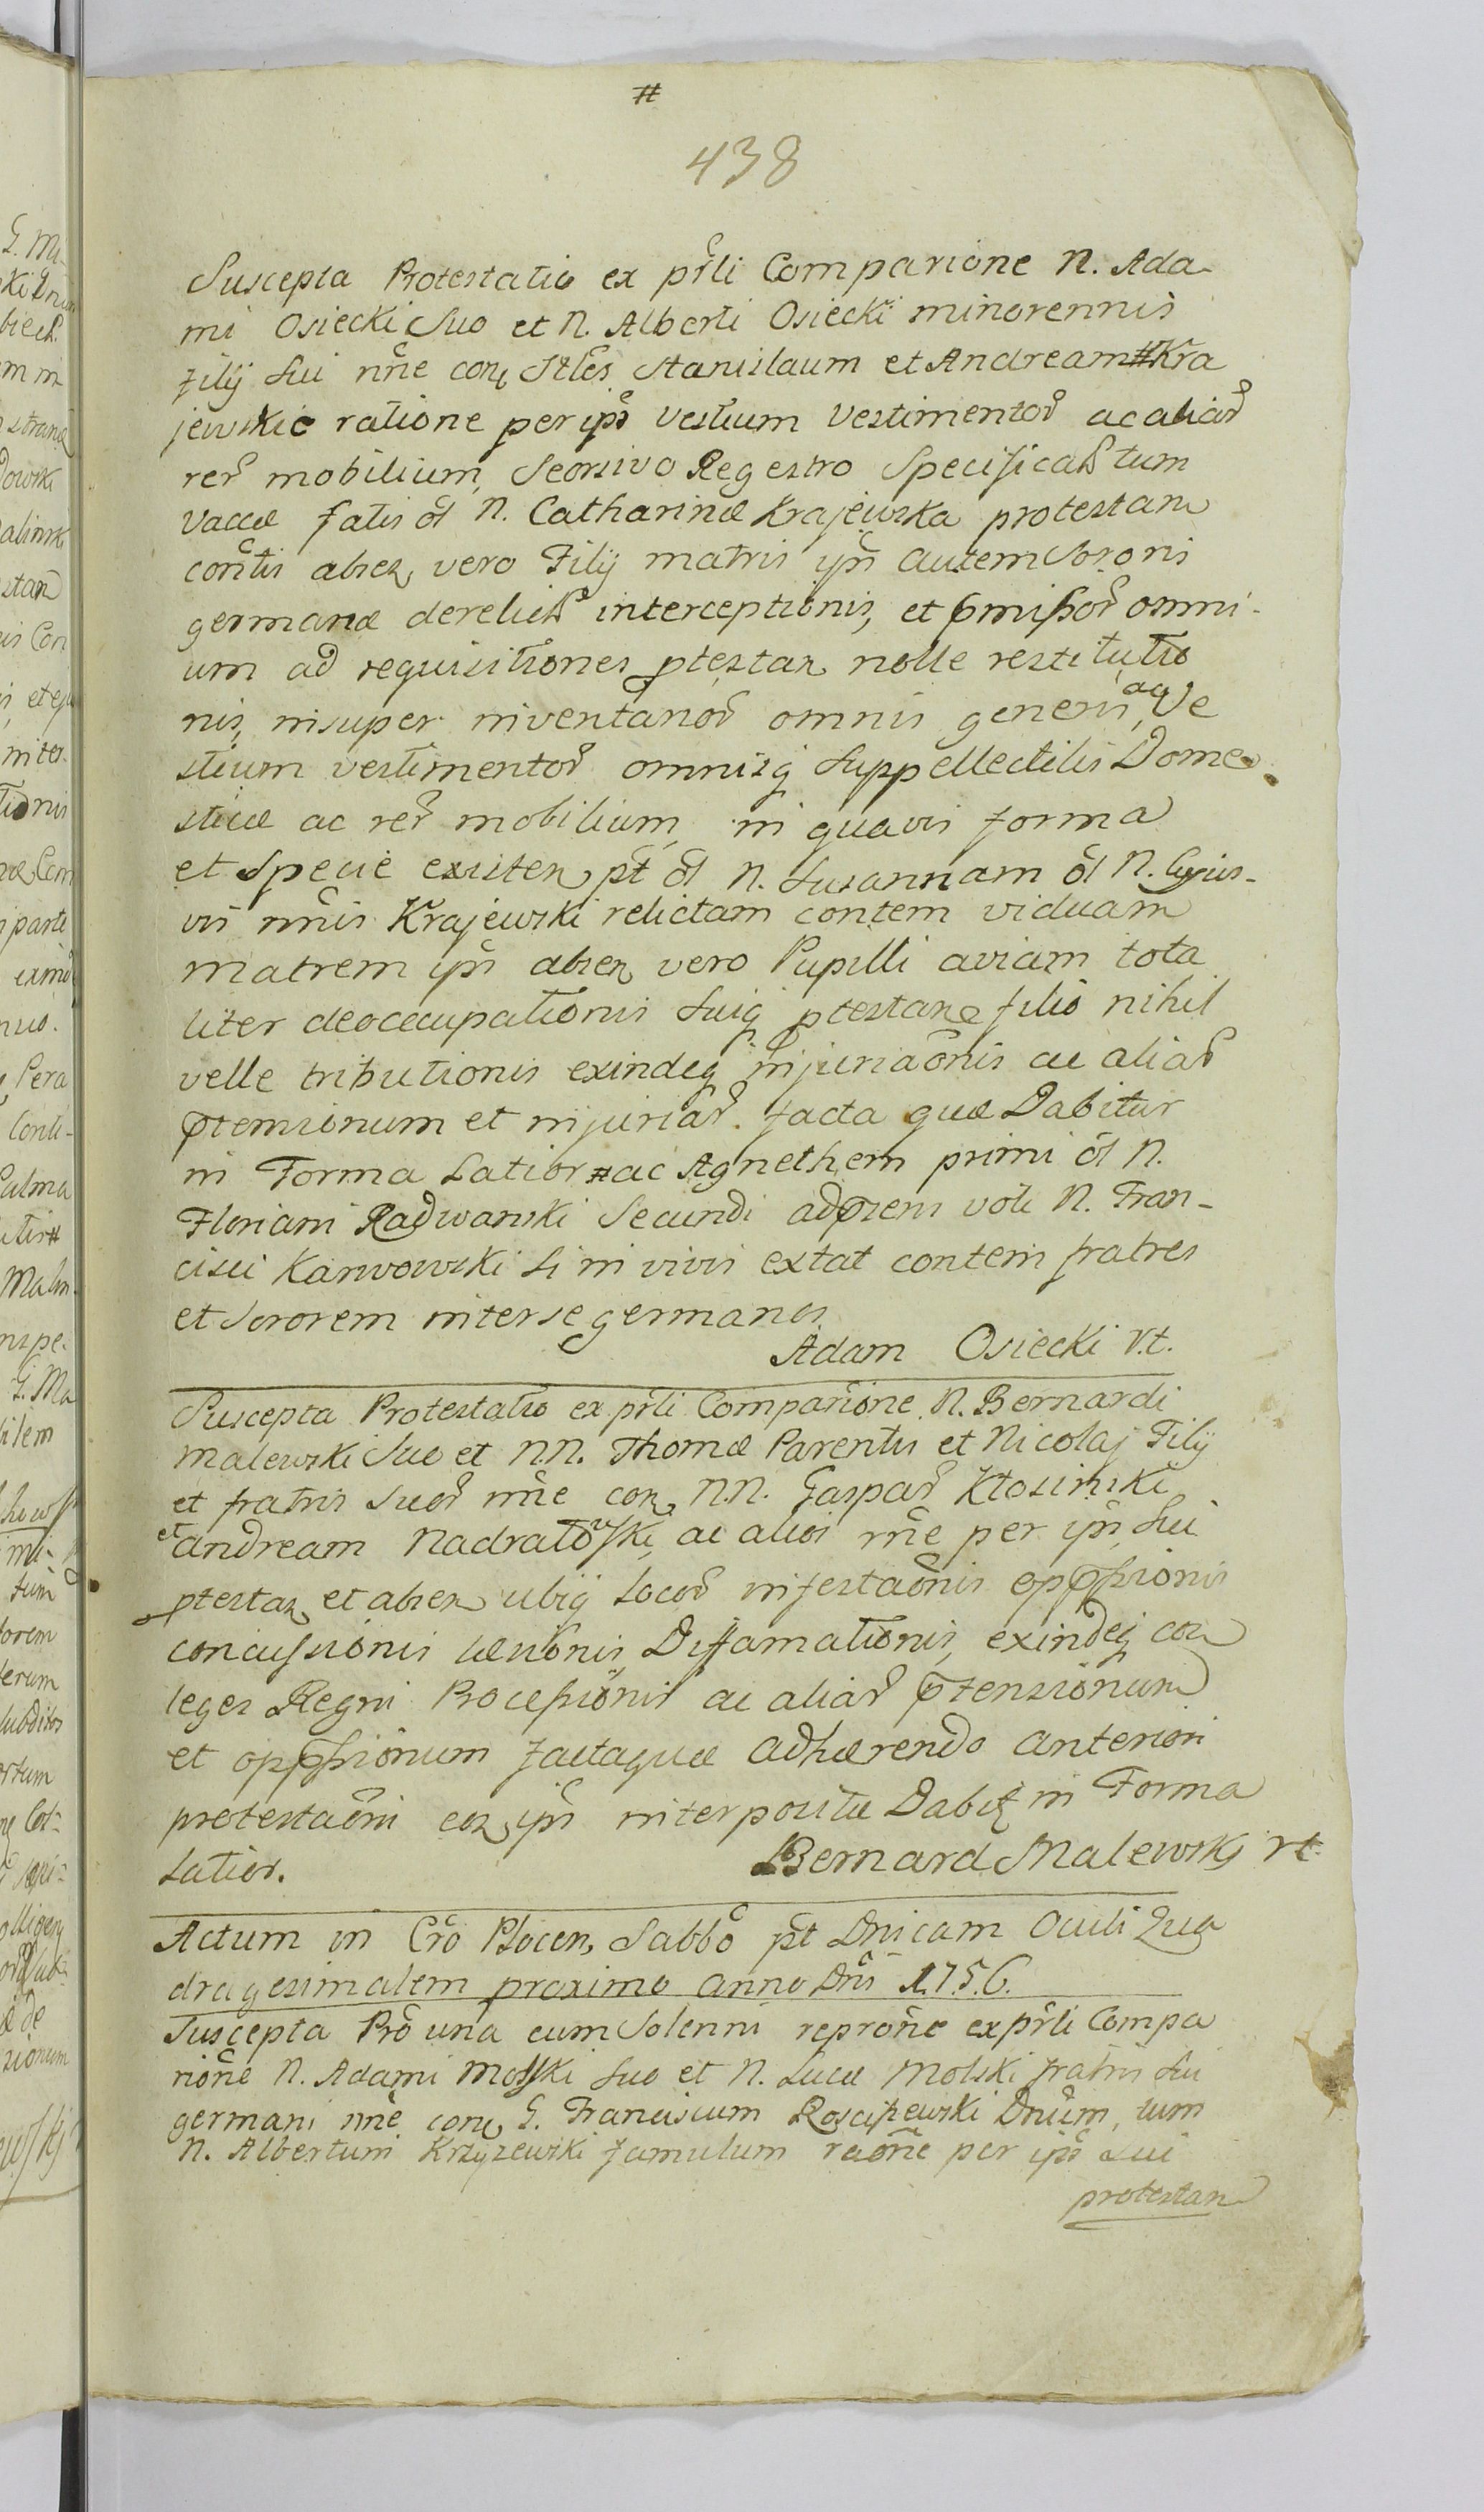 #
438
Suscepta Protestatio ex prli Comparione N. Ada
mi Osiecki Suo et N. Alberti Osiecki minorennis
filij Sui nne con Stles Stanislaum et Andream # Kra
jewskie ratione per ips vestium vestimentor ac aliar
rer mobilium, Seorsivo Regestro Specificat tum
vaccæ fatis ol N. Catharinæ Krajewska protestan
contis absen vero Filij matris ipn autem Sororis
germanæ derelict interceptionis, et pmissor omni-
um ad requisitiones ptestan nolle restitutio
nis, insuper inventarior omnis generis, ac Ve
stium vestimentor omnisq Suppellectilis Dome
sticæ ac rer mobilium, in quavis forma
et Specie existen pt ol N. Susannam ol N. Cujus-
vis nnis Krajewski relictam contem viduam
matrem ipn absen vero Pupilli aviam tota
liter deoccupationis Suiq ptestan filio nihil
velle tributionis exindeq injuriaonis ac aliar
ptensionum et injuriar. facta quæ Dabitur
in Forma Latior # ac Agnethem primi ol N.
Floriani Radwanski Secundi adprens voti N. Fran-
cisci Karwowski Si in vivis extat contem fratres
et Sororem inter se germanos
Adam Osiecki v.t.
Suscepta Protestatio ex prli Comparione N. Bernardi
Malewski Suo et N.N. Thomæ Parentis et Nicolaj Filij
et fratris Suor nne con N.N. Gaspar Kłosinski
et andream Nadratowski, ac alios rne per ipn Sui
ptestan et absen ubiq Locor infestaonis oppssionis
concussionis læsionis, Diffamationis, exindeq con
leges Regni Processionis ac aliar ptensionum
et oppssionum factaquæ adhærendo anteriori
protestaoni con ipn interpositæ Dabit in Forma
Latior.
Bernard Malewskj rt
Actum in Cro Płocen Sabbo pt Dnicam Oculi Qua
dragesimalem proximo anno Dni 1756.
Suscepta Pro una cum Solenni reprone ex prli Compa
rione N. Adami Molski Suo et N. Lucæ Molski fratris Sui
germani nne con G. Franciscum Rosciszewski Dnum, tum
N. Albertum Krzyzewski famulum raone per ips Sui
protestan